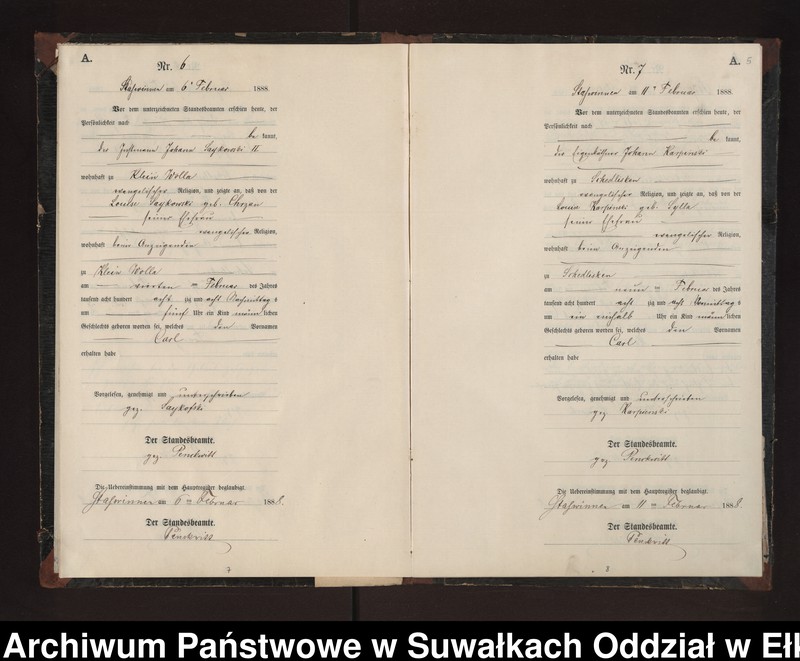 A.
Nr. 6
Stasswinnen am 6ten Februar 1888.
Vor dem unterzeichneten Standesbeamten erschien heute, der
Persönlichkeit nach
be kannt,
der Johann Saykowski II
wohnhaft zu Klein Wolla
evangelischer Religion, und zeigte an, daß von der
Louise Saykowski geb. Chrzan
seiner Ehefrau
evangelischer Religion,
wohnhaft beim Anzeigenden
zu Klein Wolla
am vierten ten Februar des Jahres
tausend acht hundert acht zig und acht Nachmittag s
um fünf Uhr ein Kind männ lichen
Geschlechts geboren worden sei, welches den Vornamen
Carl
erhalten habe
Vorgelesen, genehmigt und unterschrieben
gez. Saykofski
Der Standesbeamte.
gez. Penckwitt
Die Uebereinstimmung mit dem Hauptregister beglaubigt.
Stasswinnen am 6ten Februar 1888.
Der Standesbeamte.
Penckwitt
7
A. 5
Nr. 7
Stasswinnen am 11ten Februar 1888.
Vor dem unterzeichneten Standesbeamten erschien heute, der
Persönlichkeit nach
be kannt,
der Eigenkäthner Johann Karpinski
wohnhaft zu Schedlisken
evangelischer Religion, und zeigte an, daß von der
Louise Karpinski geb. Sylla
seiner Ehefrau
evangelischer Religion,
wohnhaft beim Anzeigenden
zu Schedlisken
am neun ten Februar des Jahres
tausend acht hundert acht zig und acht Vormittag s
um ein einhalb Uhr ein Kind männ lichen
Geschlechts geboren worden sei, welches den Vornamen
Carl
erhalten habe
Vorgelesen, genehmigt und unterschrieben
gez. Karpinski
Der Standesbeamte.
gez. Penckwitt
Die Uebereinstimmung mit dem Hauptregister beglaubigt.
Stasswinnen am 11ten Februar 1888.
Der Standesbeamte.
Penckwitt
8
Archiwum Państwowe w Suwałkach Oddział w Ełk